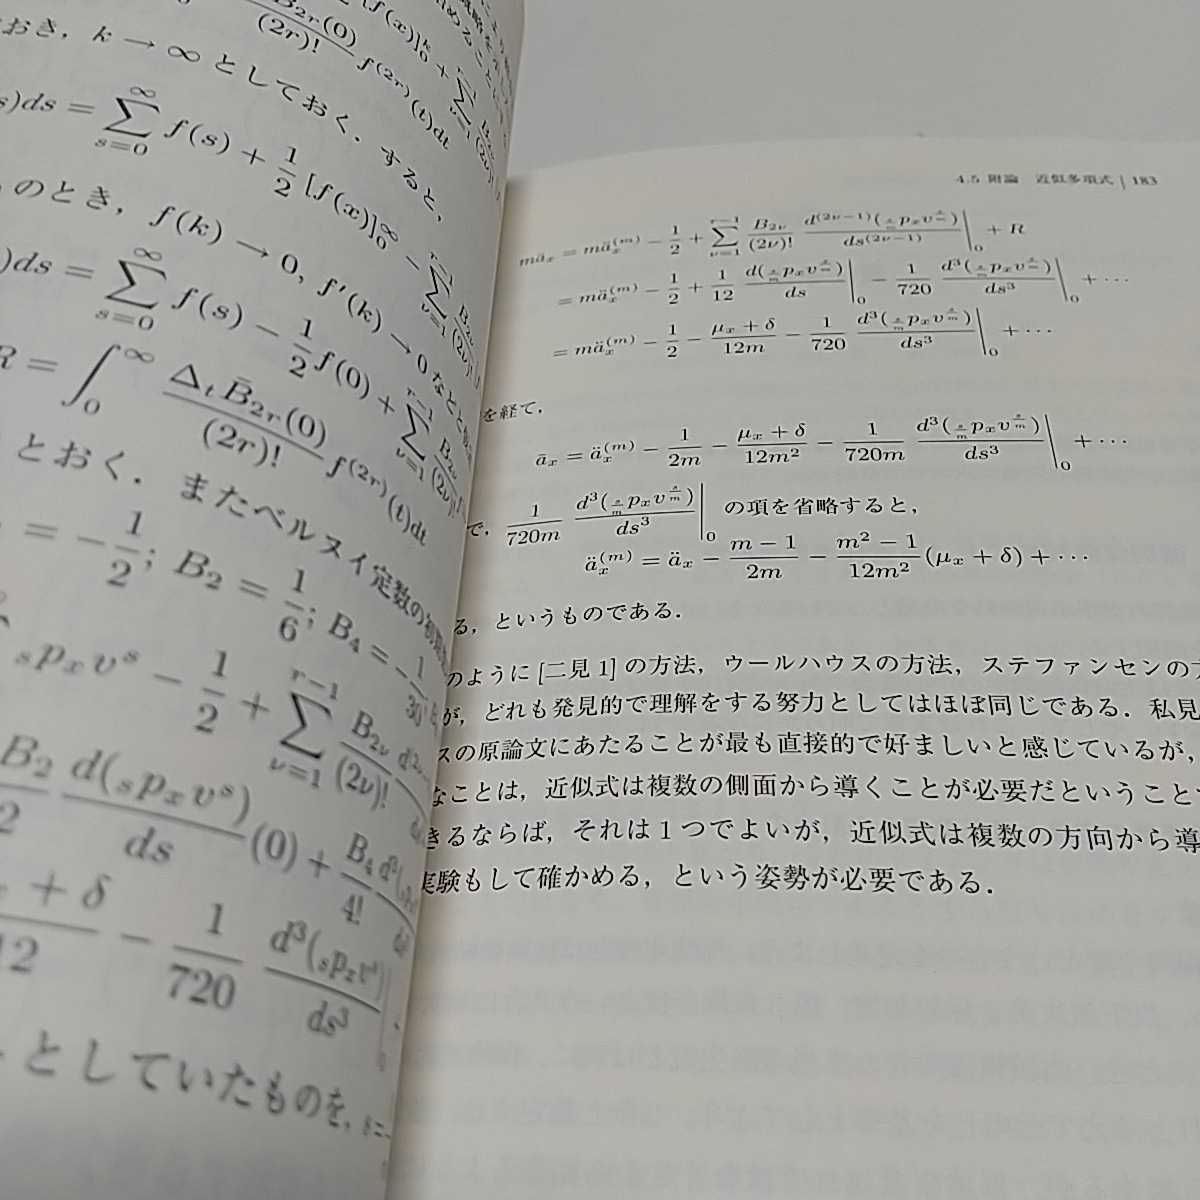 おき, k → ∞ としておく. すると,
s)ds = \sum_{s=0}^{∞} f(s) + \frac{1}{2} [f(x)]_0^{∞} − \sum_{ν=1}^{r−1} \frac{B_{2ν}}{(2ν)!}
のとき, f(k) → 0, f′(k) → 0 などと
)ds = \sum_{s=0}^{∞} f(s) − \frac{1}{2} f(0) + \sum_{ν=1}^{r−1} \frac{B_{2ν}}{(2ν)!}
R = \int_0^{∞} \frac{Δ_t \bar{B}_{2r}(0)}{(2r)!} f^{(2r)}(t)dt
とおく. またベルヌイ定数の
= −\frac{1}{2}; B_2 = \frac{1}{6}; B_4 = −\frac{1}{30};
{}_sp_x v^s − \frac{1}{2} + \sum_{ν=1}^{r−1} \frac{B_{2ν}}{(2ν)!}
\frac{B_2}{2} \frac{d({}_sp_x v^s)}{ds}(0) + \frac{B_4}{4!}
+ δ}{12} − \frac{1}{720} \frac{d^3({}_sp_x v^s)}{ds^3}|_0
としていたものを,
4.5 附論 近似多項式 | 183
m\bar{a}_x = m\ddot{a}_x^{(m)} − \frac{1}{2} + \sum_{ν=1}^{r−1} \frac{B_{2ν}}{(2ν)!} \frac{d^{(2ν−1)}({}_{\frac{s}{m}}p_x v^{\frac{s}{m}})}{ds^{(2ν−1)}}|_0 + R
= m\ddot{a}_x^{(m)} − \frac{1}{2} + \frac{1}{12} \frac{d({}_{\frac{s}{m}}p_x v^{\frac{s}{m}})}{ds}|_0 − \frac{1}{720} \frac{d^3({}_{\frac{s}{m}}p_x v^{\frac{s}{m}})}{ds^3}|_0 + ⋯
= m\ddot{a}_x^{(m)} − \frac{1}{2} − \frac{μ_x + δ}{12m} − \frac{1}{720} \frac{d^3({}_{\frac{s}{m}}p_x v^{\frac{s}{m}})}{ds^3}|_0 + ⋯
を経て,
\bar{a}_x = \ddot{a}_x^{(m)} − \frac{1}{2m} − \frac{μ_x + δ}{12m^2} − \frac{1}{720m} \frac{d^3({}_{\frac{s}{m}}p_x v^{\frac{s}{m}})}{ds^3}|_0 + ⋯
で, \frac{1}{720m} \frac{d^3({}_{\frac{s}{m}}p_x v^{\frac{s}{m}})}{ds^3}|_0 の項を省略すると,
\ddot{a}_x^{(m)} = \ddot{a}_x − \frac{m−1}{2m} − \frac{m^2−1}{12m^2}(μ_x + δ) + ⋯
る, というものである.
のように [二見 1] の方法, ウールハウスの方法, ステファンセンの方
が, どれも発見的で理解をする努力としてはほぼ同じである. 私見
スの原論文にあたることが最も直接的で好ましいと感じているが,
なことは, 近似式は複数の側面から導くことが必要だということ
きるならば, それは 1 つでよいが, 近似式は複数の方向から導
実験もして確かめる, という姿勢が必要である.